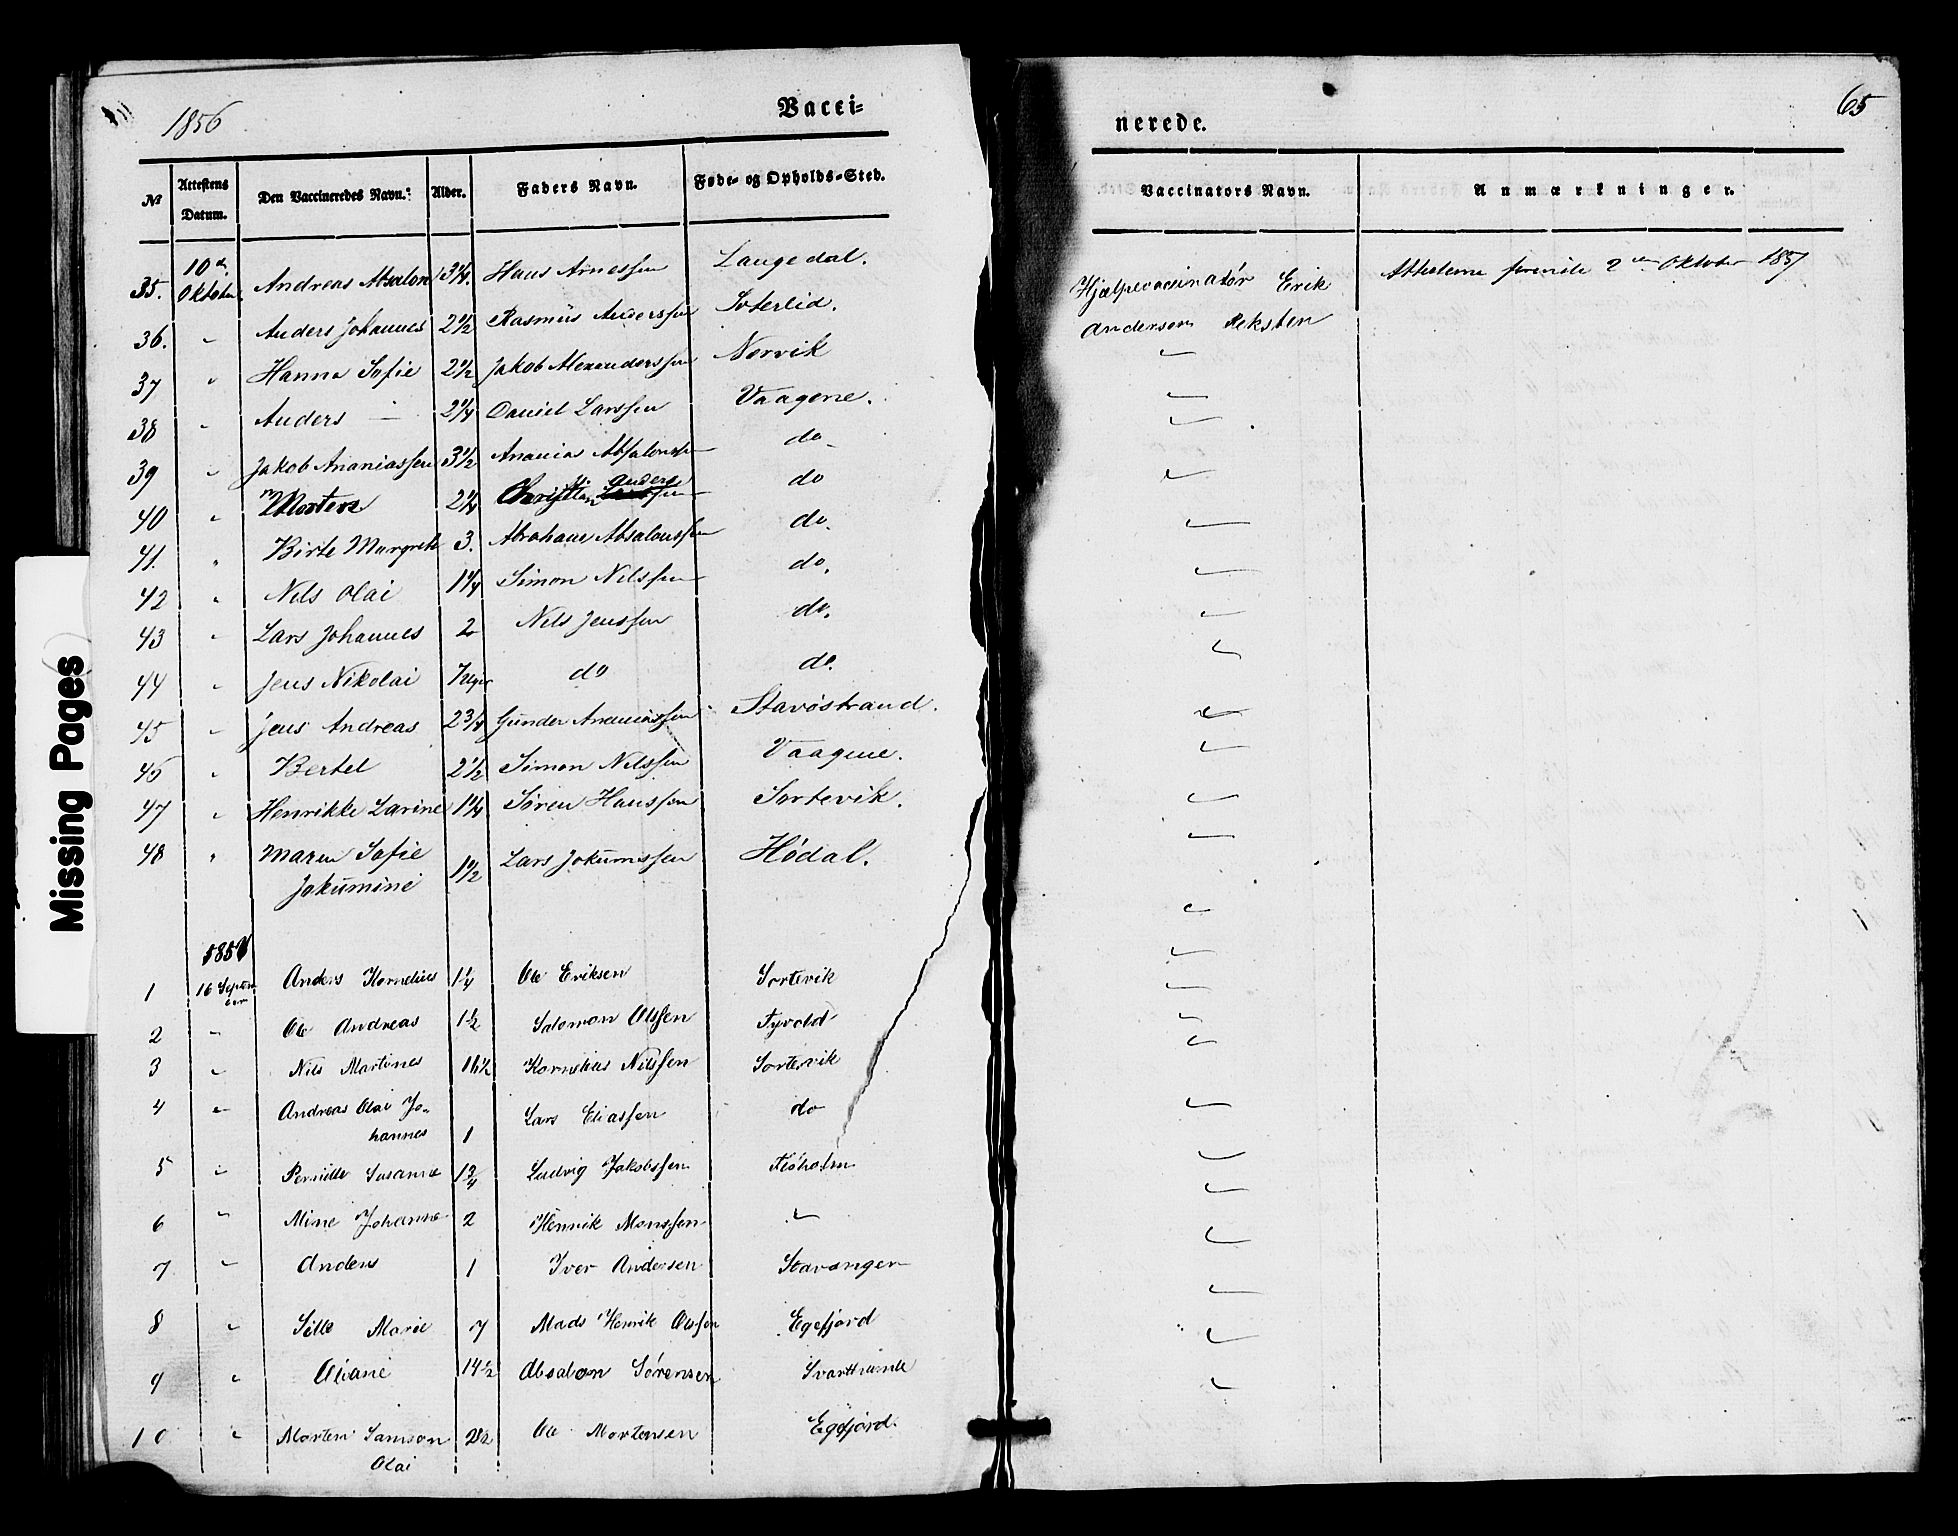 1856
Vacci=
nerede.
65
№ Attestens Datum. Den Vaccineredes Navn. Alder. Faders Navn. Føde- og Opholds-Sted. Vaccinators Navn. Anmærkninger.
35. 10de Oktober Andreas Absalon 3 1/4. Hans Arnessen Langedal. Hjælpevaccinatør Erik 2den Oktober 1857
36. " Anders Johannes 2 1/2 Rasmus Anderssen Soterlid. Andersen Reksten
37 " Hanna Sofie 2 1/2 Jakob Alexanderssen Norvik "
38 " Anders — 2 1/4 Daniel Larssen Vaagene. "
39 " Jakob Ananiassen 3 1/2 Ananias Absalonssen do "
40 " Morten 2 1/4 Christian Anderssen do "
41. " Birte Margrete 3. Abraham Absalonssen do. "
42 " Nils Olai 1 1/4 Simon Nilssen do. "
43 " Lars Johannes 2 Nils Jenssen do. "
44 " Jens Nikolai 7 Uger do do. "
45 " Jens Andreas 2 3/4 Gunder Ananiassen Stavøstrand. "
46 " Bertel 2 1/2 Simon Nilssen Vaagene. "
47 " Henrikke Larine 1 1/4 Søren Hanssen Sortevik. "
48 " Maren Sofie 1 1/2 Lars Jokumssen Hødal. "
Jokumine
1857
1 16 September Anders Kornelius 1 1/4 Ole Eriksen Sortevik "
2 " Ole Andreas 1 1/2 Salomon Olssen Tyvold "
3 " Nils Martines 16 1/2 Kornelius Nilssen Sortevik "
4 " Andreas Olai Jo- Lars Eliassen do "
hannes 1
5 " Pernille Susanne 1 3/4 Ludvig Jakobssen Fløholm "
6 " Mine Johanne 2 Henrik Monssen " "
7 " Anders 1 Iver Andersen Stavangen "
8 " Sille Marie 7 Mads Henrik Olssen Egefjord "
9 " Oliane 14 1/2 Absalon Sørensen "
10 " Morten Samson 2 1/2 Ole Mortensen Egefjord. "
Olai
Missing Pages